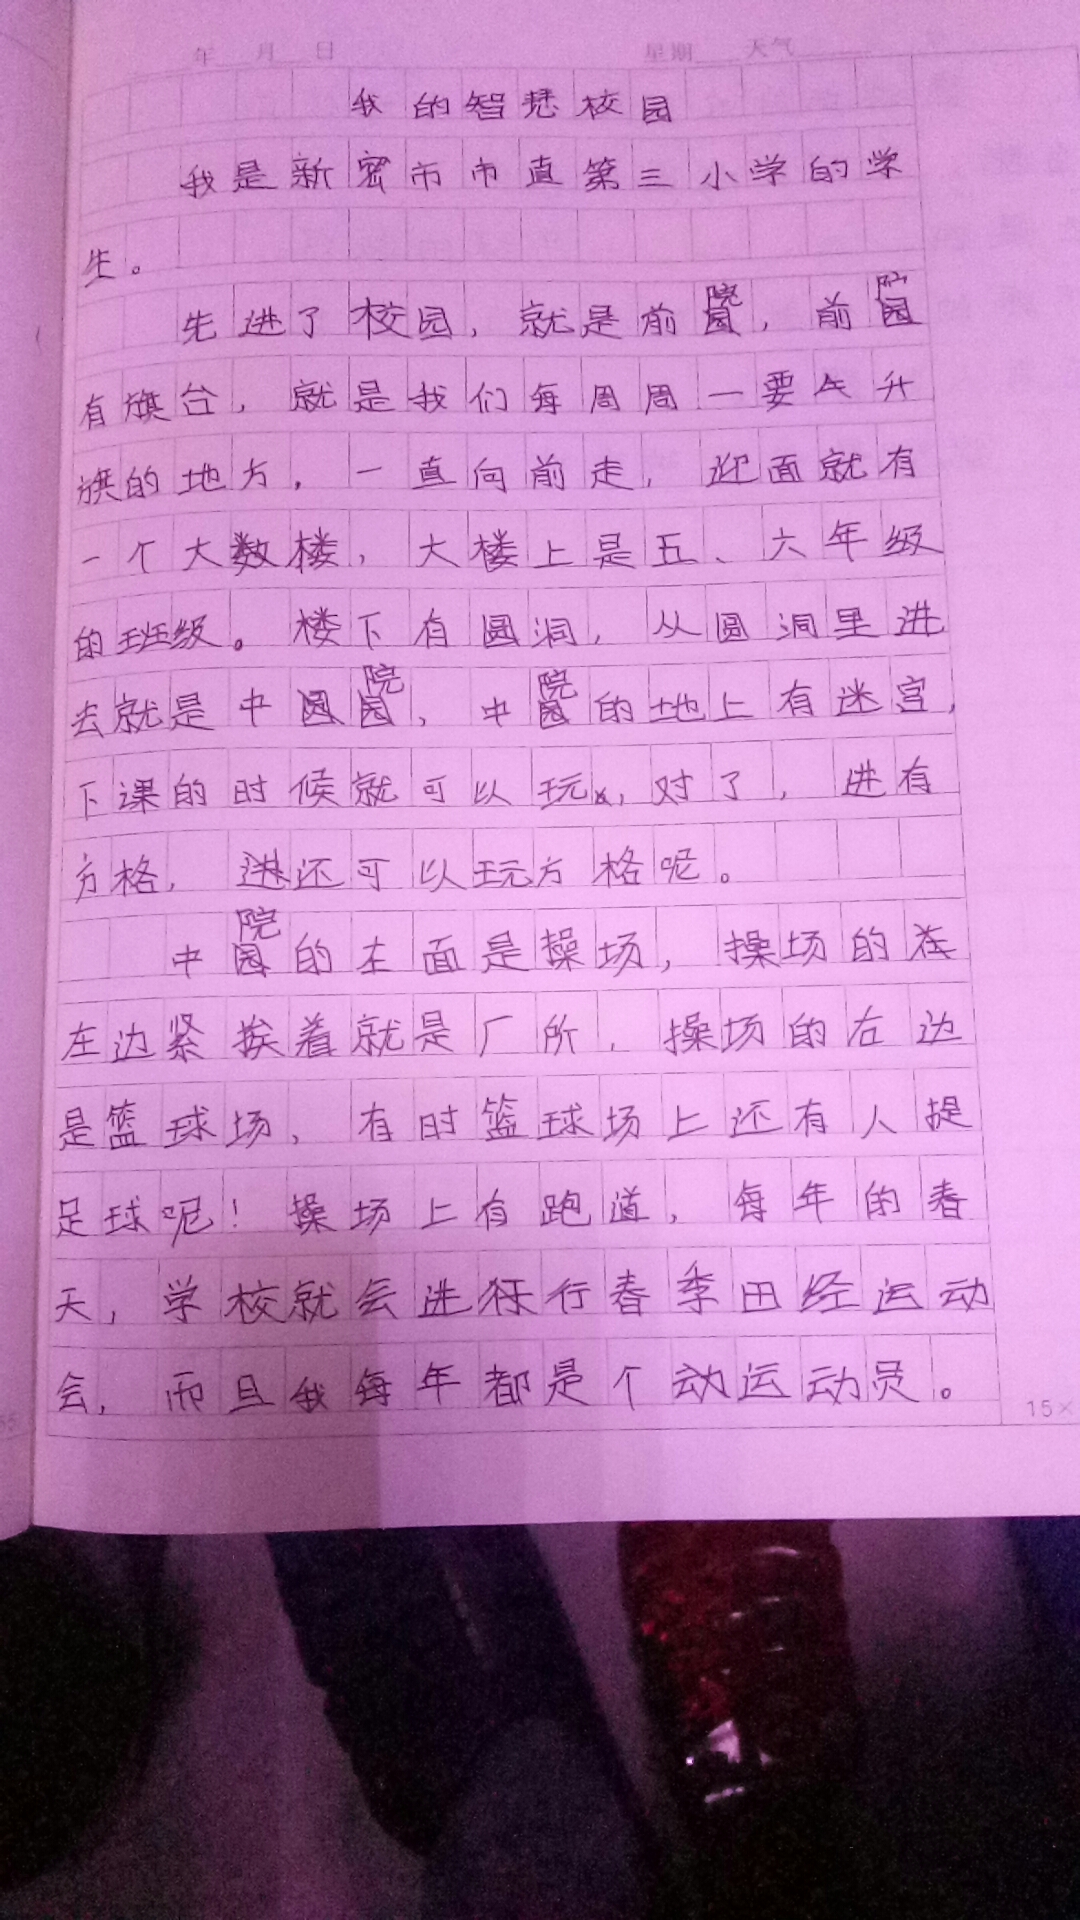 年 月 日 星期 天气
我的智慧校园
我是新密市市直第三小学的学
生。
先进了校园，就是前院，前院
有旗台，就是我们每周周一要升
旗的地方，一直向前走，迎面就有
一个大数楼，大楼上是五、六年级
的班级。楼下有圆洞，从圆洞里进
去就是中院，中院的地上有迷宫，
下课的时候就可以玩，对了，进有
方格，还可以玩方格呢。
中院的左面是操场，操场的
左边紧挨着就是厂所，操场的右边
是篮球场，有时篮球场上还有人提
足球呢！操场上有跑道，每年的春
天，学校就会进行春季田经运动
会，而且我每年都是个动运动员。
15×